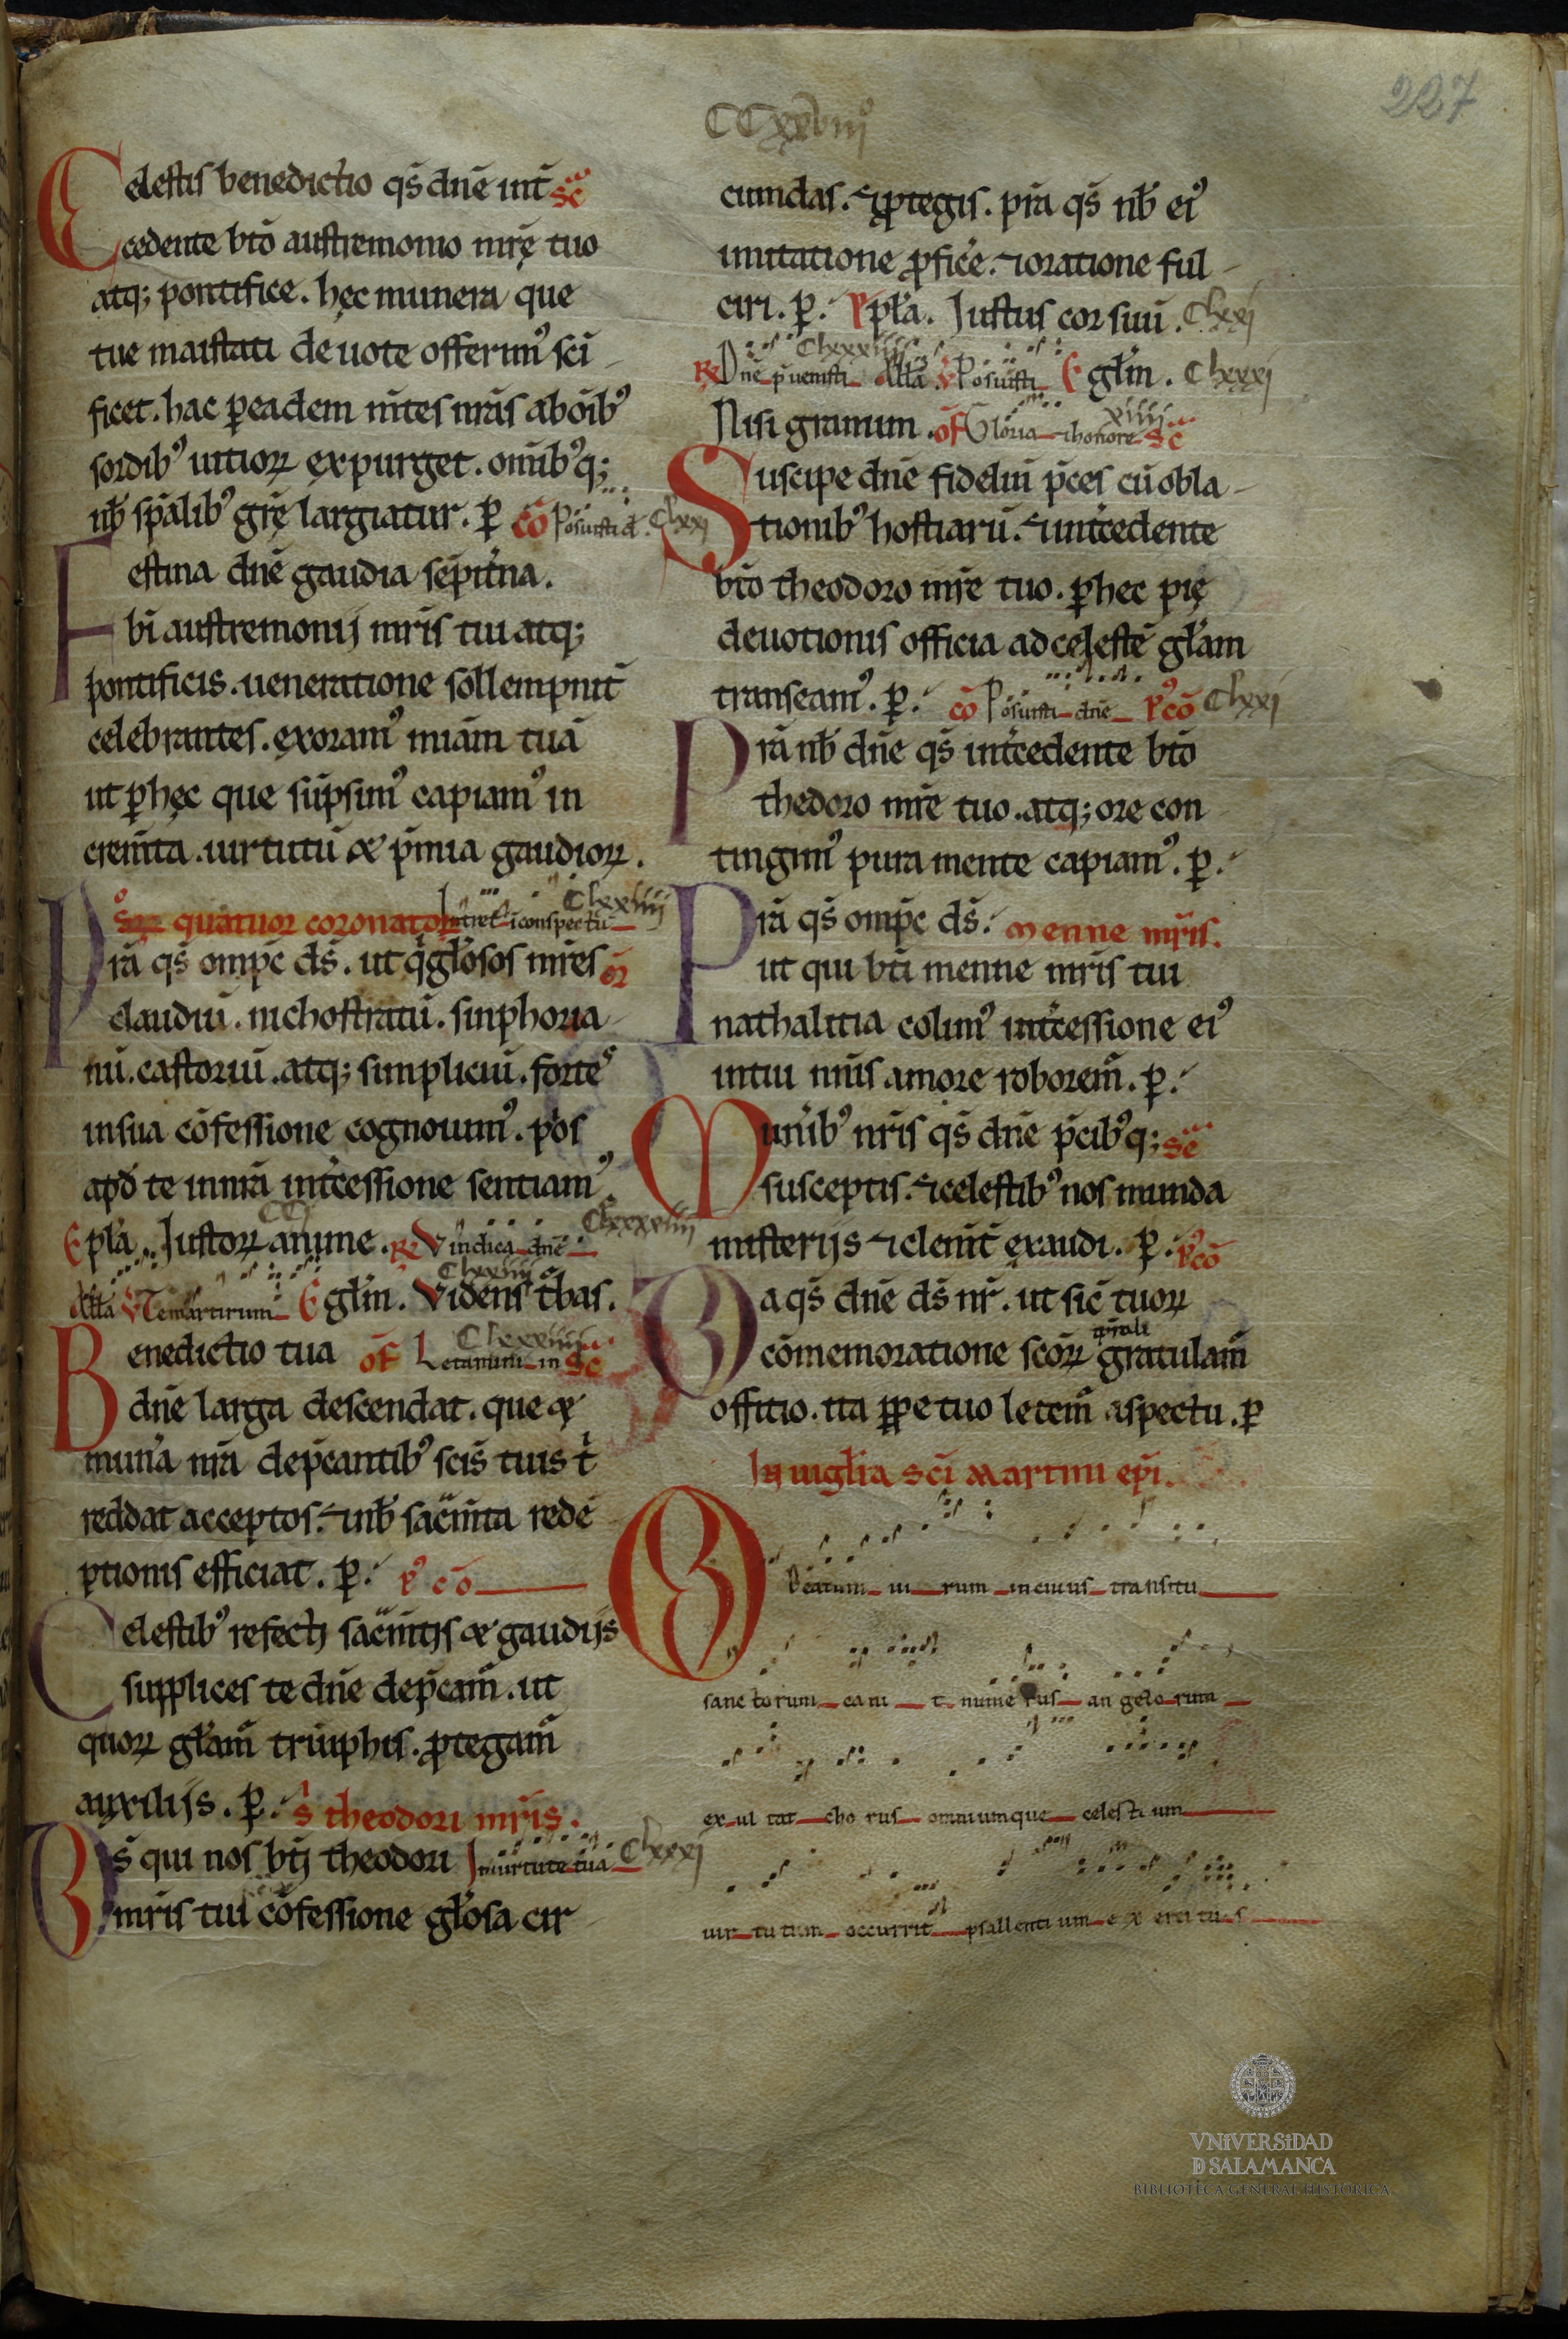 227
CCxxviiiº
Celestis benedictio qs̄ dn̄e int̄ sc̄
cedente bt̄o austremonio mr̄ę tuo
atq; pontifice. hęc munera que
tue maiestati deuote offerimꝰ sc̄i
ficet. hac ꝑ eadem m̄tes nr̄as ab oīb̄ꝰ
sordibꝰ uitioꝝ expurget. omībꝰq;
nb̄ spālibꝰ grę largiatur. ꝑ cō Posuisti d. Clxxi
Festina dn̄e gaudia sēpit̄na.
bī austremonij mr̄is tui atq;
pontificis. ueneratione sollempnit̄
celebrantes. exoramꝰ miām tuā
ut ꝑ hęc que sūpsimꝰ capiamꝰ in
crem̄ta. uirtutū & p̄mia gaudioꝝ.
sōꝝ quatuor coronatoꝝ Intret ī conspectu Clxxiiii
Prā qs̄ omp̄c ds̄. ut q̄ gl̄osos mr̄es oꝛ̄
claudiū. nichostratū. sinphoria
nū. castoriū. atq; simpliciū. fortes
in sua cōfessione cognouimꝰ. p̄ios
apd̄ te in nr̄a int̄cessione sentiamꝰ.
Epl̄a. Iustoꝝ anime. CCi ℞ Vindica dn̄e Clxxxviii
All̄a ℣ Te martirum Egl̄m. Videns t̄bas. Clxxiiii
Benedictio tua of Letamini in sc̄ Clxxiiii
dn̄e larga descendat. que &
mun̄a nr̄a dep̄cantibꝰ sc̄is tuis t̄
reddat acceptos. & nb̄ sac̄m̄ta redē
ptionis efficiat. ꝑ. pꝰ cō
Celestibꝰ refecti sac̄m̄tis & gaudijs
supplices te dn̄e dep̄cam̄. ut
quoꝝ gl̄am̄ triūphis. ꝓtegam̄
auxilijs. ꝑ. s̄ theodori mr̄is.
Ds̄ qui nos bt̄i theodori In uirtute tua Clxxxi
mr̄is tui cōfessione gl̄osa cir
cumdas. & ꝓtegis. prā qs̄ nb̄ eiꝰ
imitatione ꝓficē. & oratione ful
ciri. ꝑ. Epl̄a. Iustus cor suū. Clxxi
℞ Dn̄e p̄uenisti Clxxxiiii All̄a ℣ Posuisti Egl̄m. Clxxxi
Nisi granum. of Gloria & honore xiiii sc̄
Suscipe dn̄e fideliū p̄ces cū obla
tionibꝰ hostiarū. & int̄cedente
bt̄o theodoro mr̄e tuo. ꝑ hec pię
deuotionis officia ad celestē gl̄am
transeamꝰ. ꝑ. cō Posuisti dn̄e pꝰcō Clxxi
Prā nb̄ dn̄e qs̄ int̄cedente bt̄o
thedoro mr̄e tuo. atq; ore con
tingimꝰ pura mente capiamꝰ. ꝑ.
Prā qs̄ omp̄c ds̄. menne mr̄is.
ut qui bt̄i menne mr̄is tui
nathalitia colimꝰ int̄cessione eiꝰ
in tui nīnis amore roborem̄. ꝑ.
Mun̄ibꝰ nr̄is qs̄ dn̄e p̄cibꝰq; sc̄
susceptis. & celestibꝰ nos munda
misterijs & clem̄t̄ exaudi. ꝑ. pꝰcō
Da qs̄ dn̄e ds̄ nr̄. ut sic̄ tuoꝝ
cōmemoratione sc̄oꝝ t̄p̄ali gratulam̄
offitio. ita ꝑpetuo letem̄ aspectu. ꝑ
In uigl̄ia sc̄i martini epī.
O Beatum ui rum in cuius transitu
sanc torum cani t nume rus an gelo rum
ex ul tat cho rus omniumque celesti um
uir tu tum occurrit psallenti um ex erci tu s
VNIVERSIDAD
D SALAMANCA
BIBLIOTECA GENERAL HISTÓRICA